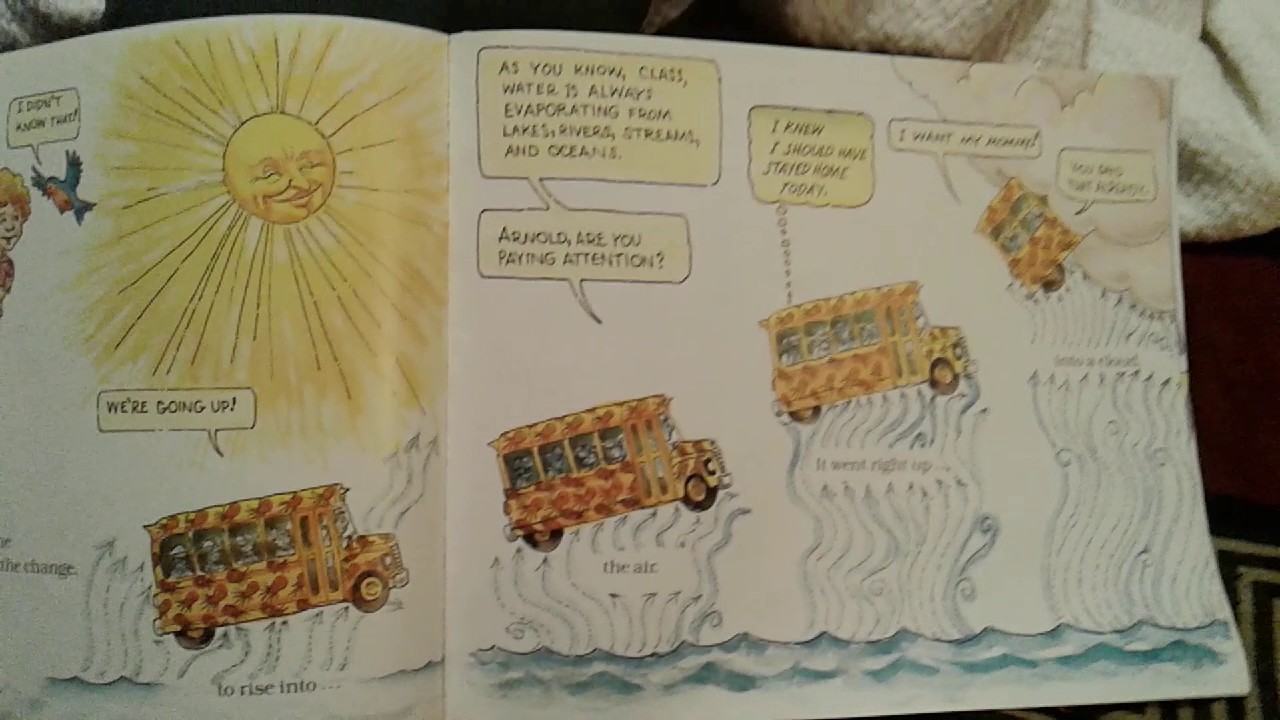 I DIDN'T
KNOW THAT!
WE'RE GOING UP!
the change.
to rise into...
AS YOU KNOW, CLASS,
WATER IS ALWAYS
EVAPORATING FROM
LAKES, RIVERS, STREAMS,
AND OCEANS.
ARNOLD, ARE YOU
PAYING ATTENTION?
the air.
I KNEW
I SHOULD HAVE
STAYED HOME
TODAY.
It went right up...
I WANT MY MOMMY!
YOU SAID
THAT ALREADY.
into a cloud.